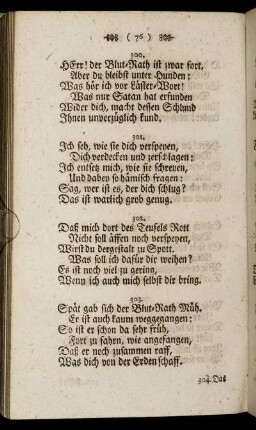 ( 76 )
300.
HErr! der Blut-Rath ist zwar fort,
Aber du bleibst unter Hunden:
Was hör ich vor Läster-Wort!
Was nur Satan hat erfunden
Wider dich, macht dessen Schlund
Ihnen unverzüglich kund.
301.
Ich seh, wie sie dich verspeyen,
Dich verdecken und zerschlagen:
Ich entsetz mich, wie sie schreyen,
Und dabey so hämisch fragen:
Sag, wer ist es, der dich schlug?
Das ist warlich grob genug.
302.
Daß mich dort des Teufels Rott
Nicht soll äffen noch verspeyen,
Wirst du dergestalt zu Spott.
Was soll ich dafür dir weihen?
Es ist noch viel zu gering,
Wenn ich auch mich selbst dir bring.
303.
Spät gab sich der Blut-Rath Müh,
Er ist auch kaum weggegangen:
So ist er schon da sehr früh,
Fort zu fahrn, wie angefangen,
Daß er noch zusammen raff,
Was dich von der Erden schaff.
304. Das